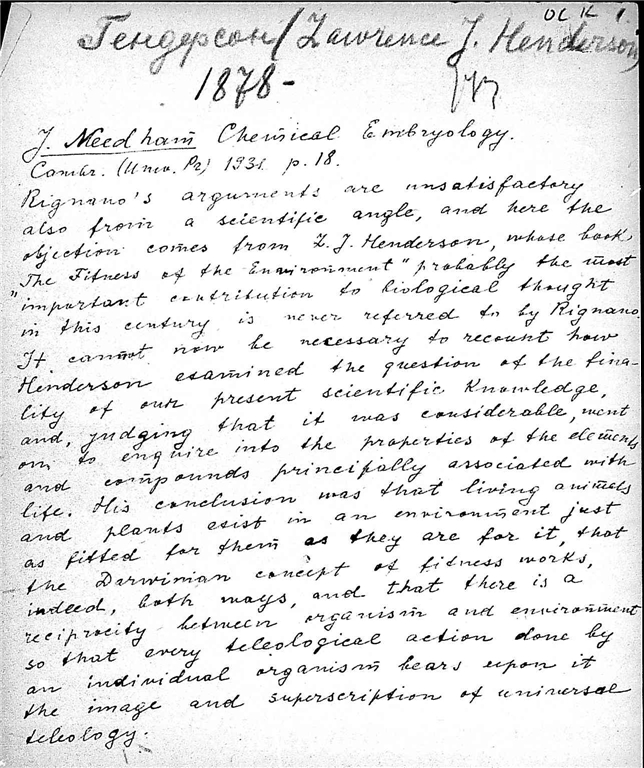 ОСК 1.
Гендерсон (Lawrence J. Henderson)
1878-
J. Needham Chemical Embryology.
Cambr. (Univ. Pr.) 1931 p. 18.
Rignano's arguments are unsatisfactory
also from a scientific angle, and here the
objection comes from L. J. Henderson, whose book
"The Fitness of the Environment" probably the most
important contribution to biological thought
in this century is never referred to by Rignano.
It cannot now be necessary to recount how
Henderson examined the question of the fina-
lity of our present scientific knowledge,
and, judging that it was considerable, went
on to enquire into the properties of the elements
and compounds principally associated with
life. His conclusion was that living animals
and plants exist in an environment just
as fitted for them as they are for it, that
the Darwinian concept of fitness works,
indeed, both ways, and that there is a
reciprocity between organism and environment
so that every teleological action done by
an individual organism bears upon it
the image and superscription of universal
teleology.